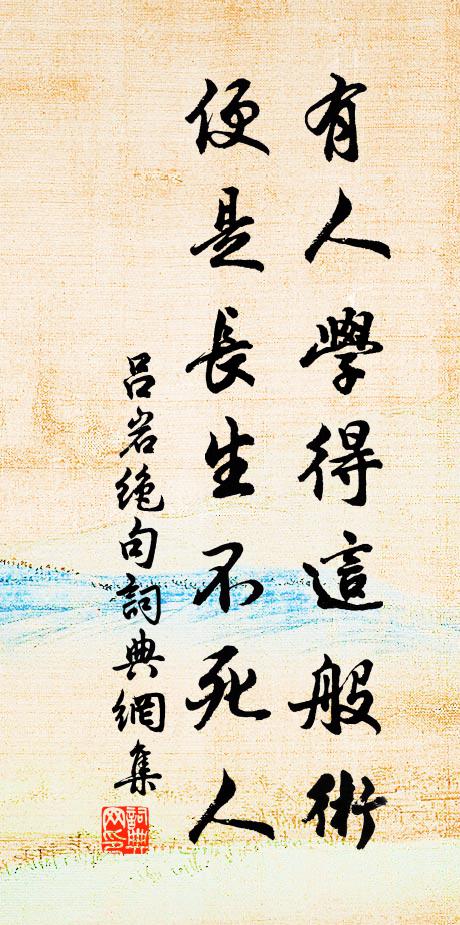 有人學得這般術
便是長生不死人
呂岩絕句詞典網集
詞典網印